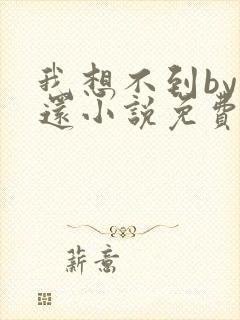 我想不到by
還小説免費
薪意